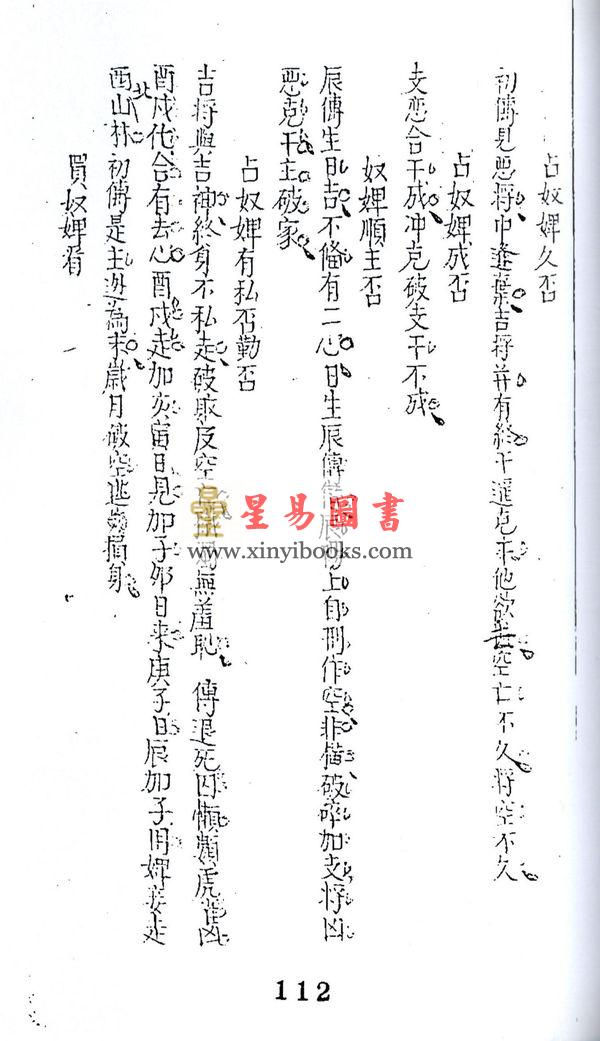 占奴婢久否
初傳見惡將中逢葉吉將并有終干遙克乖他欲去空亡不久將空不久
占奴婢成否
支恋合干成冲克破支干不成
奴婢順主否
辰傳生日吉不備有二心日生辰傳上自刑作空非偕破碎加支將凶
惡克干主破家
占奴婢有私否勤否
吉將與吉神終身不私走破敗反空無羞恥 傳退死囚懶類虎雀凶
酉戌化合有去心酉戌走加亥寅日見加子卯日来庚子日辰加子用婢妾走
西北山林初傳是主迯為末歲月破空逃損身
買奴婢看
星易圖書
www.xinyibooks.com
112